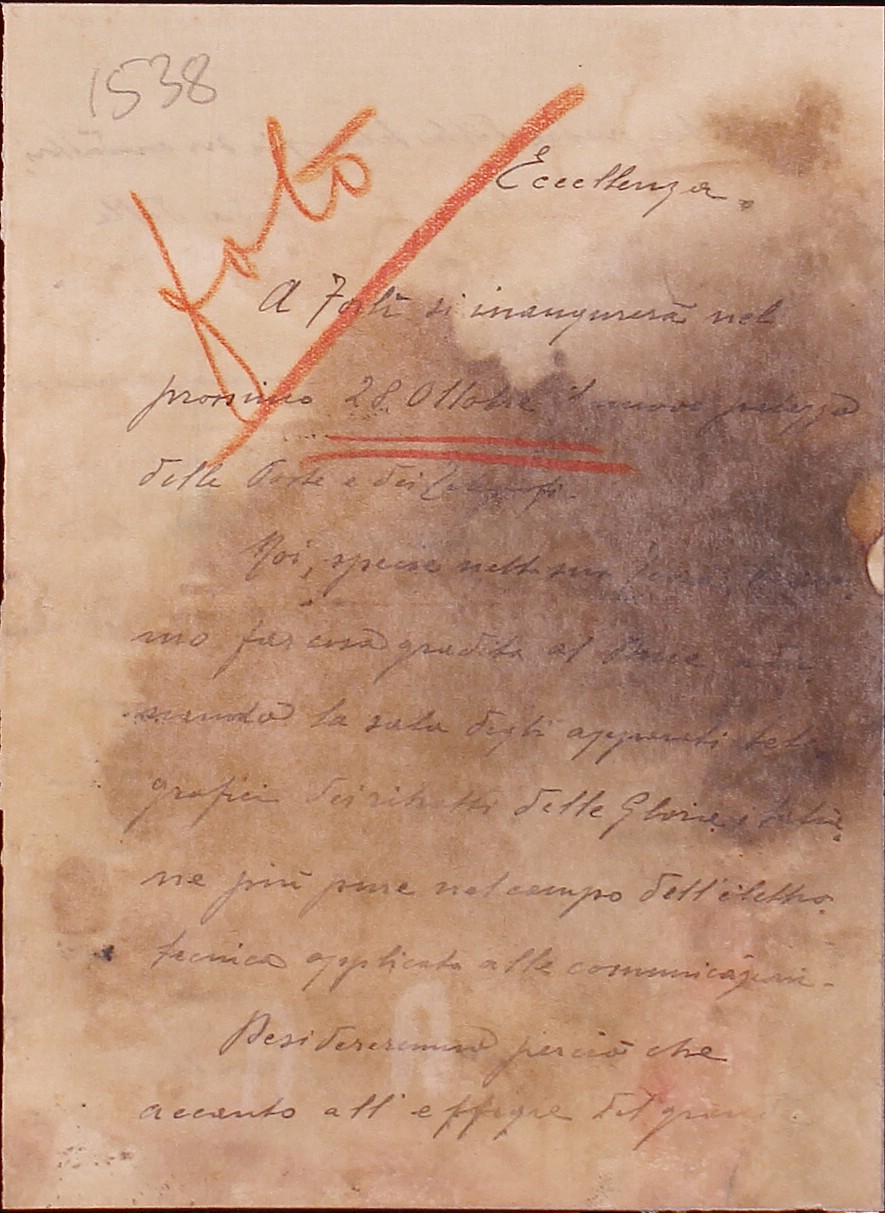 1538
foto
Eccellenza.
A Forlì si inaugurerà nel
prossimo 28 Ottobre il nuovo palazzo
delle Poste e dei
Noi, specie nella sua
mo far cosa gradita al
nando la sala degli apparati tele
grafici dei ritratti delle Glorie italia
ne più pure nel campo dell'elettro
tecnica applicata alle comunicazioni.
Desidereremmo perciò che
accanto all'effigie del grande